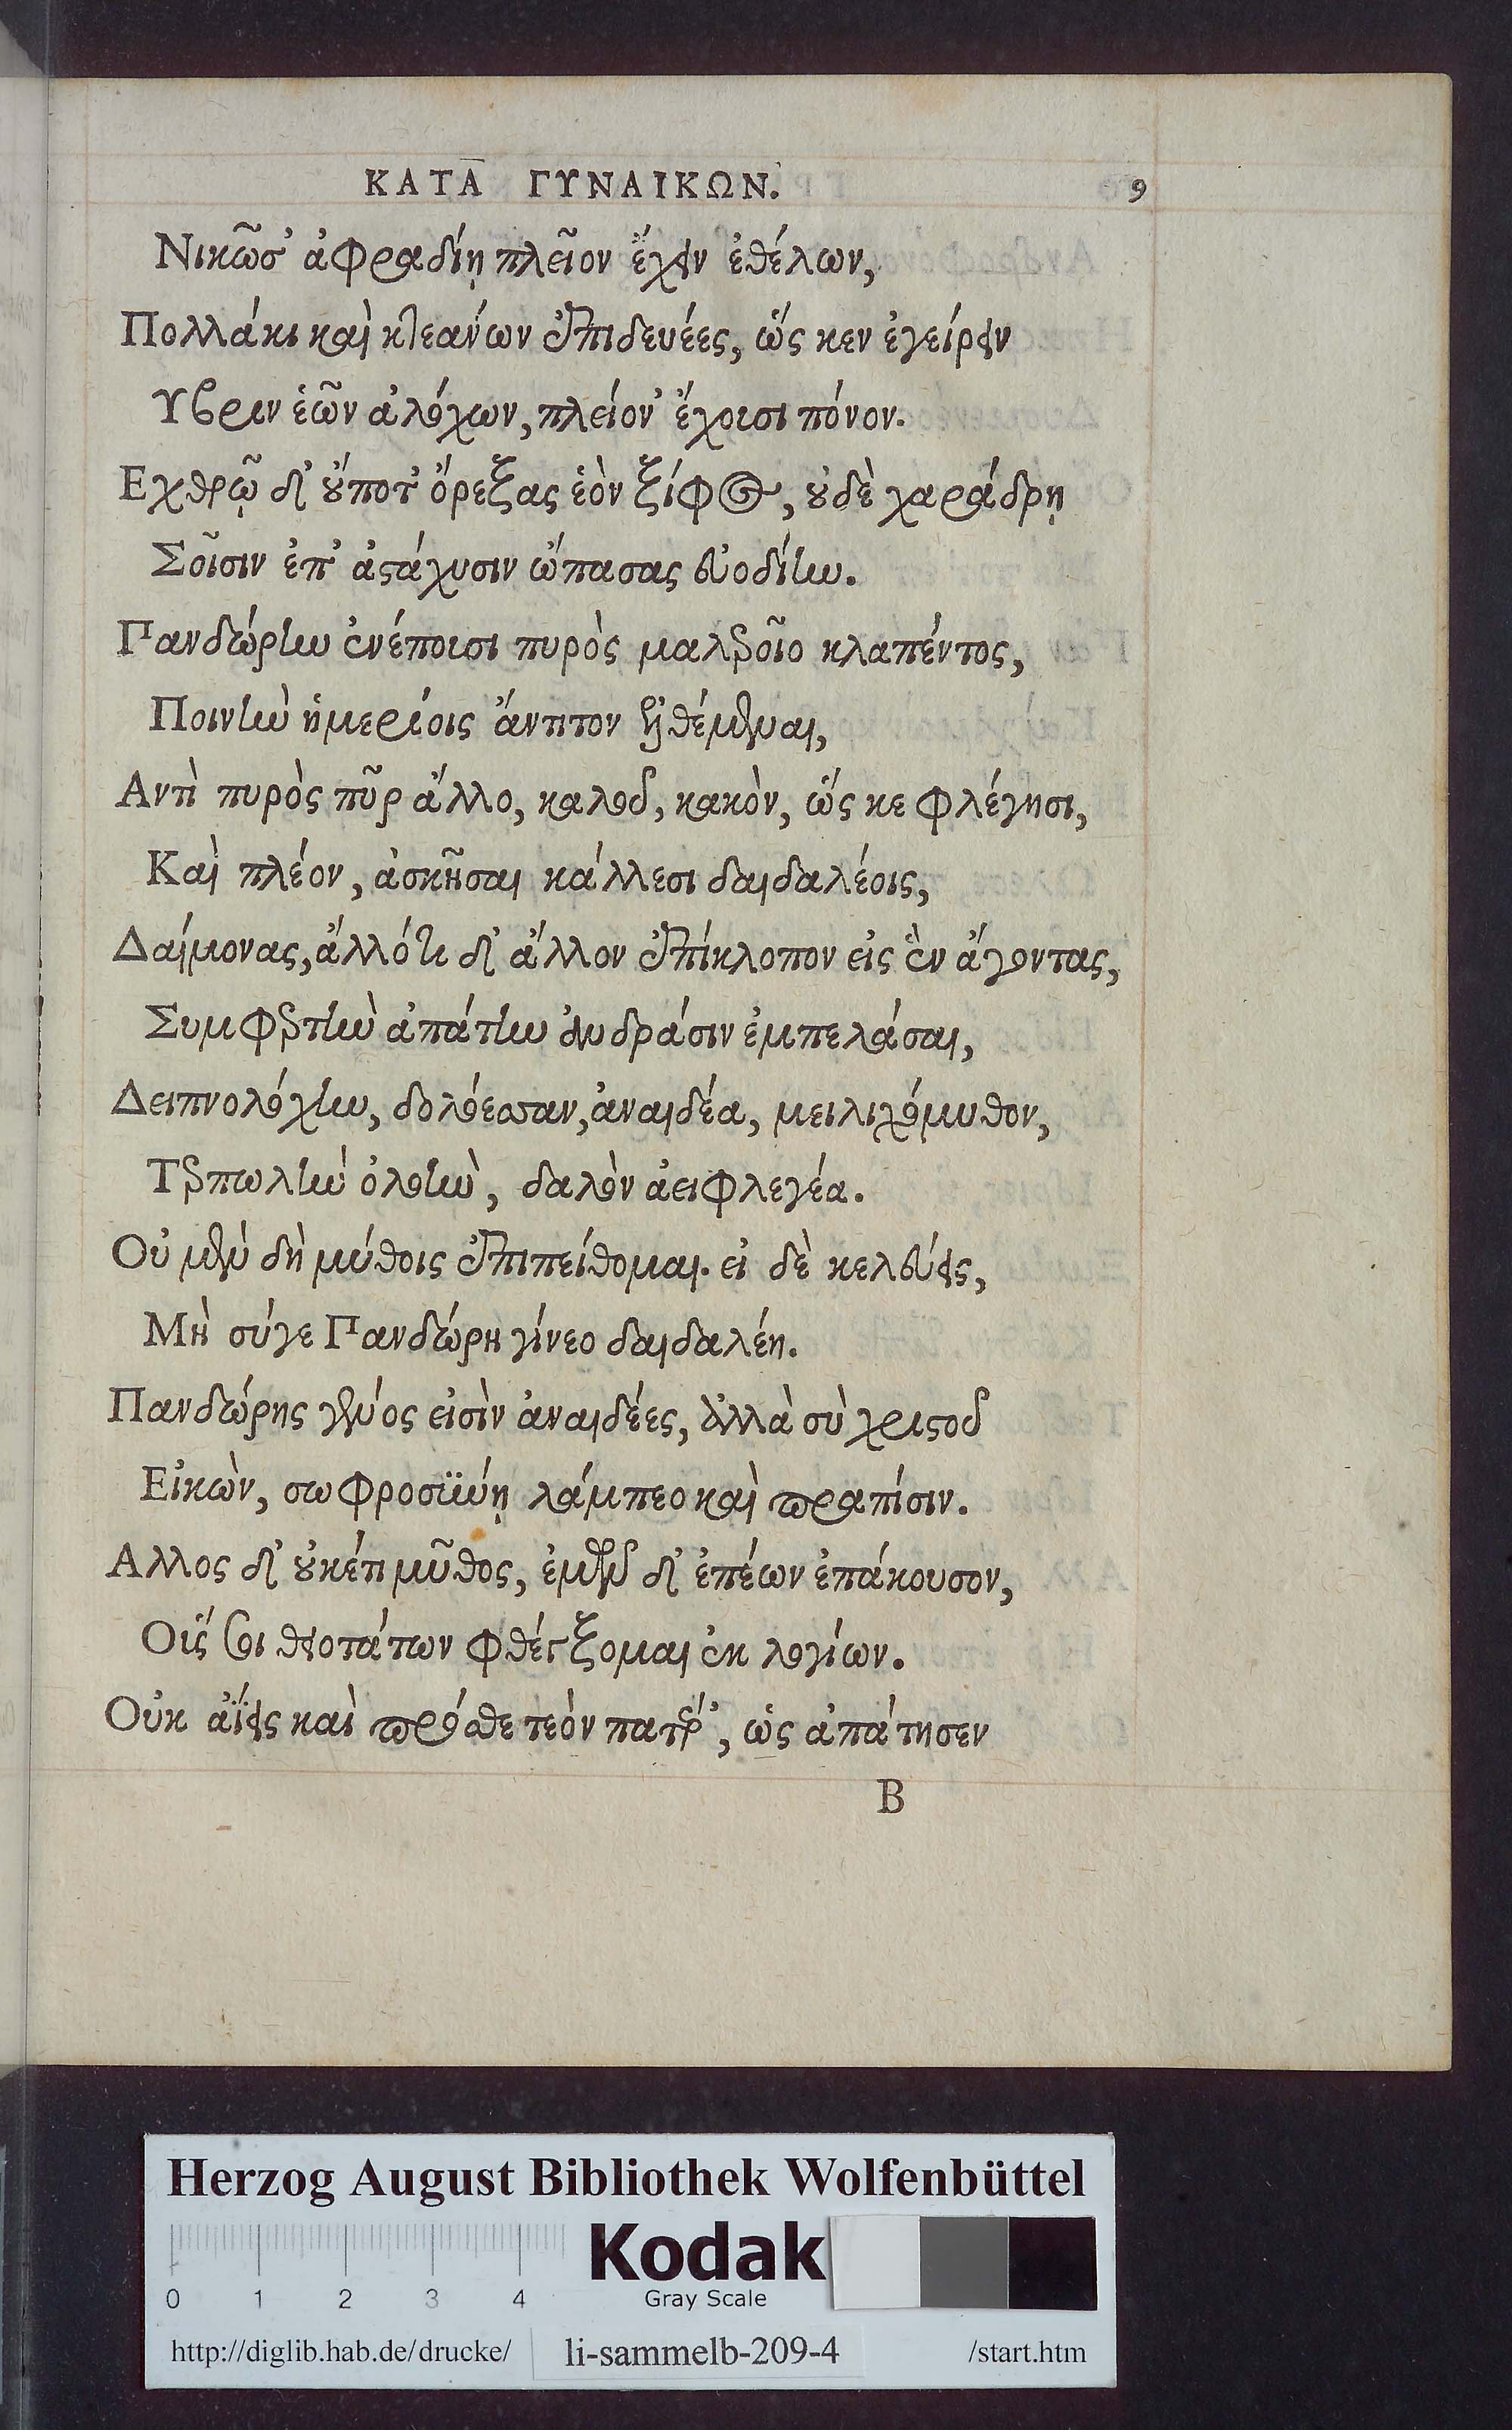 ΚΑΤΑ ΓΥΝΑΙΚΩΝ. 9
Νικῶσ᾽ ἀφραδίῃ πλεῖον ἔχειν ἐθέλων,
Πολλάκι καὶ κτεάνων ἐπιδευέες, ὥς κεν ἐγείρειν
Υβριν ἑῶν ἀλόχων, πλείον᾽ ἔχοισι πόνον.
Εχθρῷ δ᾽ οὔποτ᾽ ὄρεξας ἑὸν ξίφος, οὐδὲ χαράδρῃ
Σοῖσιν ἐπ᾽ ἀστάχυσιν ὤπασας εὐοδίην.
Πανδώρην ἐνέποισι πυρὸς μαλεροῖο κλαπέντος,
Ποινὴν ἡμερίοις ἄντιτον ἐκθέμεναι,
Αντὶ πυρὸς πῦρ ἄλλο, καλοῦ, κακὸν, ὥς κε φλέγησι,
Καὶ πλέον, ἀσκῆσαι κάλλεσι δαιδαλέοις,
Δαίμονας, ἄλλότε δ᾽ ἄλλον ἐπίκλοπον εἰς ἓν ἄγοντας,
Συμφερτὴν ἀπάτην ἀνδράσιν ἐμπελάσαι,
Δειπνολόχην, δολόεσσαν, ἀναιδέα, μειλιχόμυθον,
Τερπωλὴν ὀλοὴν, δαλὸν ἀειφλεγέα.
Οὐ μὲν δὴ μύθοις ἐπιπείθομαι. εἰ δὲ κελεύεις,
Μὴ σύγε Πανδώρη γίνεο δαιδαλέη.
Πανδώρης γένος εἰσὶν ἀναιδέες, ἀλλὰ σὺ χριστοῦ
Εἰκὼν, σωφροσύνῃ λάμπεο καὶ πραπίσιν.
Αλλος δ᾽ οὐκέτι μῦθος, ἐμῶν δ᾽ ἐπέων ἐπάκουσον,
Οἷς σοι θειοτάτων φθέγξομαι ἐκ λογίων.
Οὐκ ἀΐεις καὶ πρόσθε τεὸν πατέρ᾽, ὡς ἀπάτησεν
Β
Herzog August Bibliothek Wolfenbüttel
0 1 2 3 4
Kodak
Gray Scale
http://diglib.hab.de/drucke/ li-sammelb-209-4 /start.htm